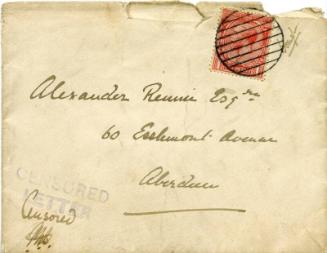 Alexander Rennie Esqre
60 Esslemont Avenue
Aberdeen
CENSORED
LETTER
Censored